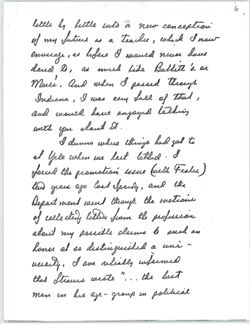 6
little by little into a new conception
of my future as a teacher, which I now
envisage, as before I would never have
dared to, as much like Babbitt's or
More's. And when I passed through
Indiana, I was very full of that,
and would have enjoyed talking
with you about it.
I dunno where things had got to
at Yale when we last talked. I
forced the promotion issue (with Fesler)
two years ago last Spring, and the
Department went through the motions
of collecting letters from the profession
about my possible claims to such an
honor at so distinguished a uni-
versity. I am reliably informed
that Strauss wrote "... the best
man in his age-group in political